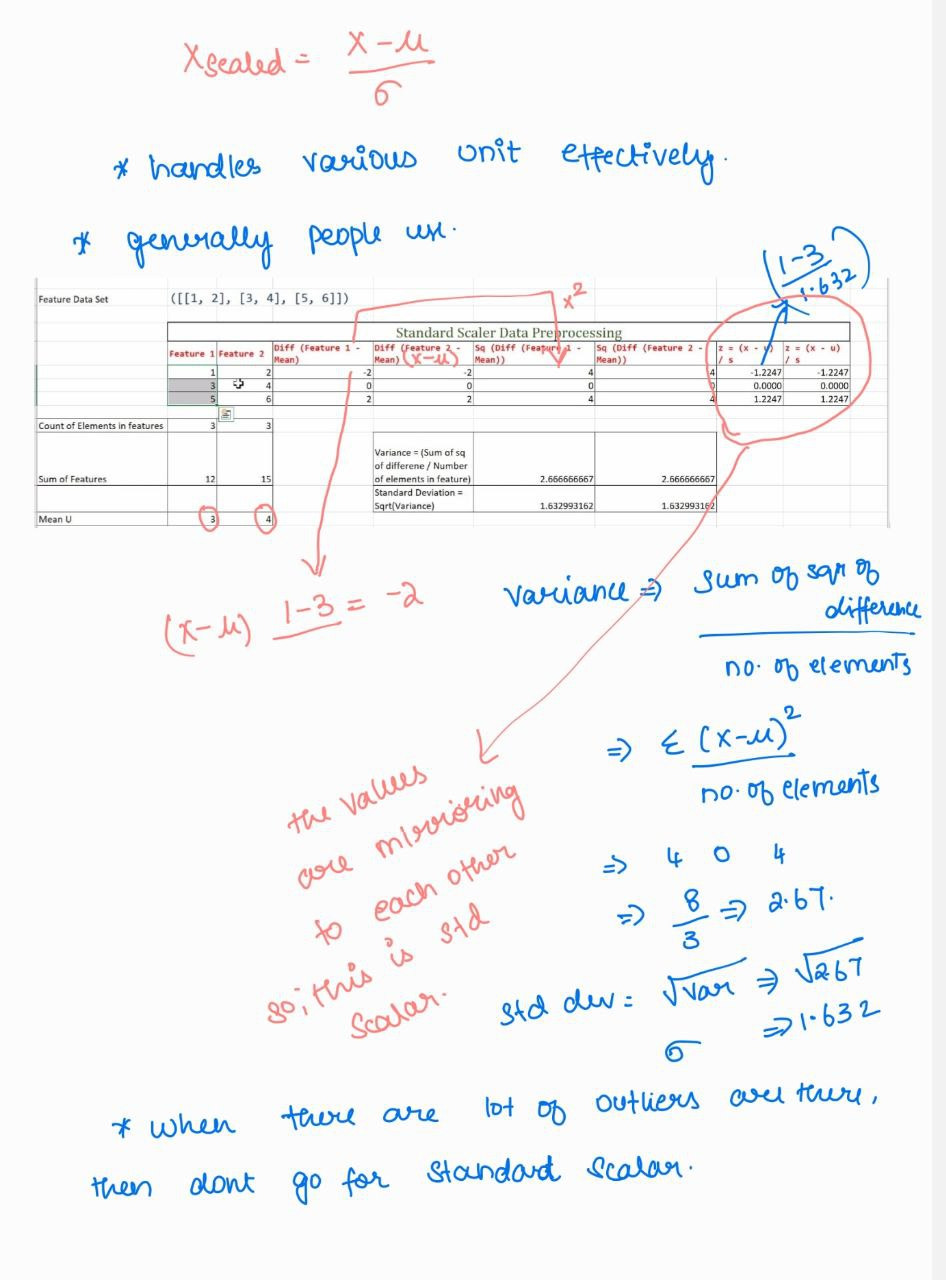 Xscaled = X - μ
σ
* handles various unit effectively.
* generally people use.
(1-3
1.632)
Feature Data Set ([[1, 2], [3, 4], [5, 6]])
x²
Standard Scaler Data Preprocessing
Feature 1 Feature 2 Diff (Feature 1 - Mean) Diff (Feature 2 - Mean) Sq (Diff (Feature 1 - Mean)) Sq (Diff (Feature 2 - Mean)) z = (x - u) / s z = (x - u) / s
(x-μ)
1 2 -2 -2 4 4 -1.2247 -1.2247
3 4 0 0 0 0 0.0000 0.0000
5 6 2 2 4 4 1.2247 1.2247
Count of Elements in features 3 3
Variance = (Sum of sq
of differene / Number
Sum of Features 12 15 of elements in feature) 2.666666667 2.666666667
Standard Deviation =
Sqrt(Variance) 1.632993162 1.632993162
Mean U 3 4
(x-μ) 1-3 = -2
Variance ⇒ Sum of sqr of
difference
no. of elements
⇒ Σ (x-μ)²
no. of elements
the values
are mirrioring
to each other
so, this is std
Scalar.
⇒ 4 0 4
⇒ 8 ⇒ 2.67.
3
Std dev = √Var ⇒ √2.67
σ ⇒ 1.632
* When there are lot of outliers are there,
then dont go for Standard Scalar.